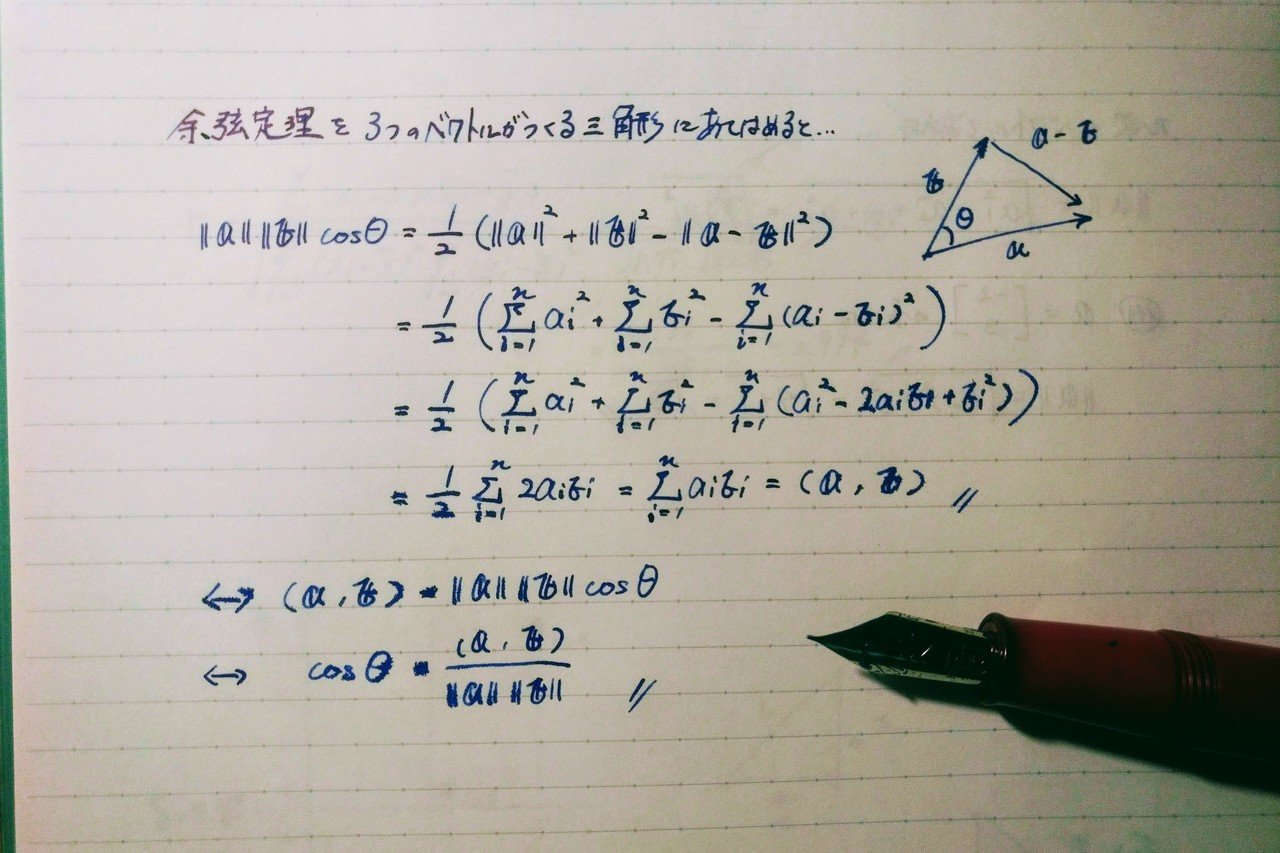 余弦定理を3つのベクトルがつくる三角形にあてはめると…
a - b
b
θ
a
‖a‖‖b‖cosθ = 1/2 (‖a‖² + ‖b‖² - ‖a - b‖²)
= 1/2 (∑_{i=1}^{n} a_i² + ∑_{i=1}^{n} b_i² - ∑_{i=1}^{n} (a_i - b_i)²)
= 1/2 (∑_{i=1}^{n} a_i² + ∑_{i=1}^{n} b_i² - ∑_{i=1}^{n} (a_i² - 2a_i b_i + b_i²))
= 1/2 ∑_{i=1}^{n} 2a_i b_i = ∑_{i=1}^{n} a_i b_i = (a, b) //
↔ (a, b) = ‖a‖‖b‖cosθ
↔ cosθ = (a, b) / ‖a‖‖b‖ //